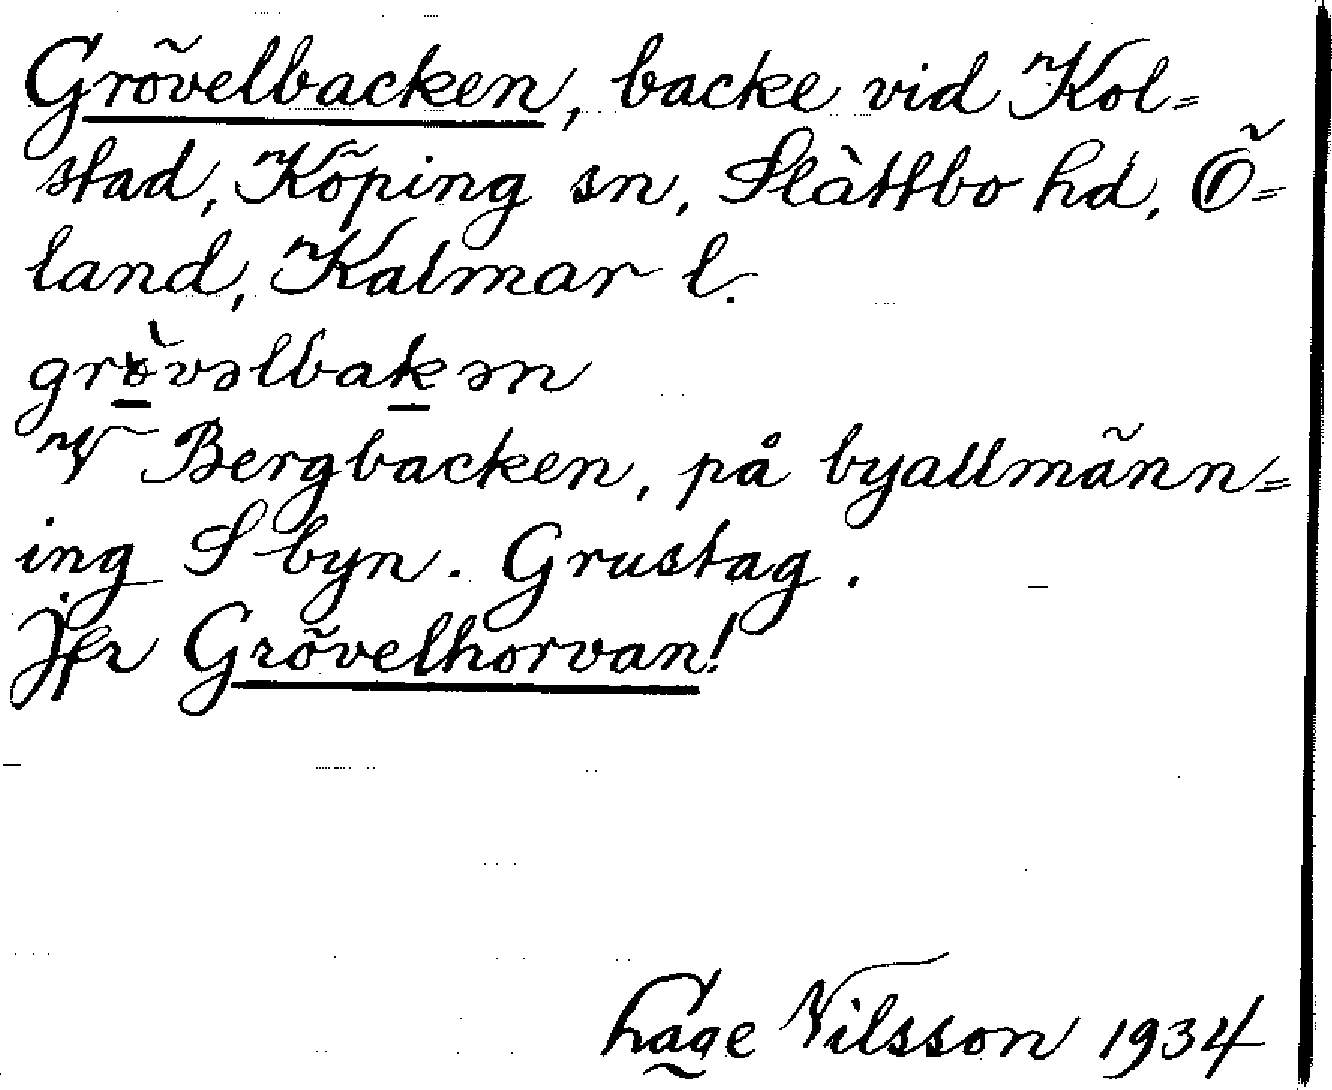 Grövelbacken, backe vid Kol=
stad, Köping sn, Slättbo hd, Ö=
land, Kalmar l.
grövəlbakən
V Bergbacken, på byallmänn=
ing S byn. Grustag.
Jfr Grövelhorvan!
Hage Nilsson 1934